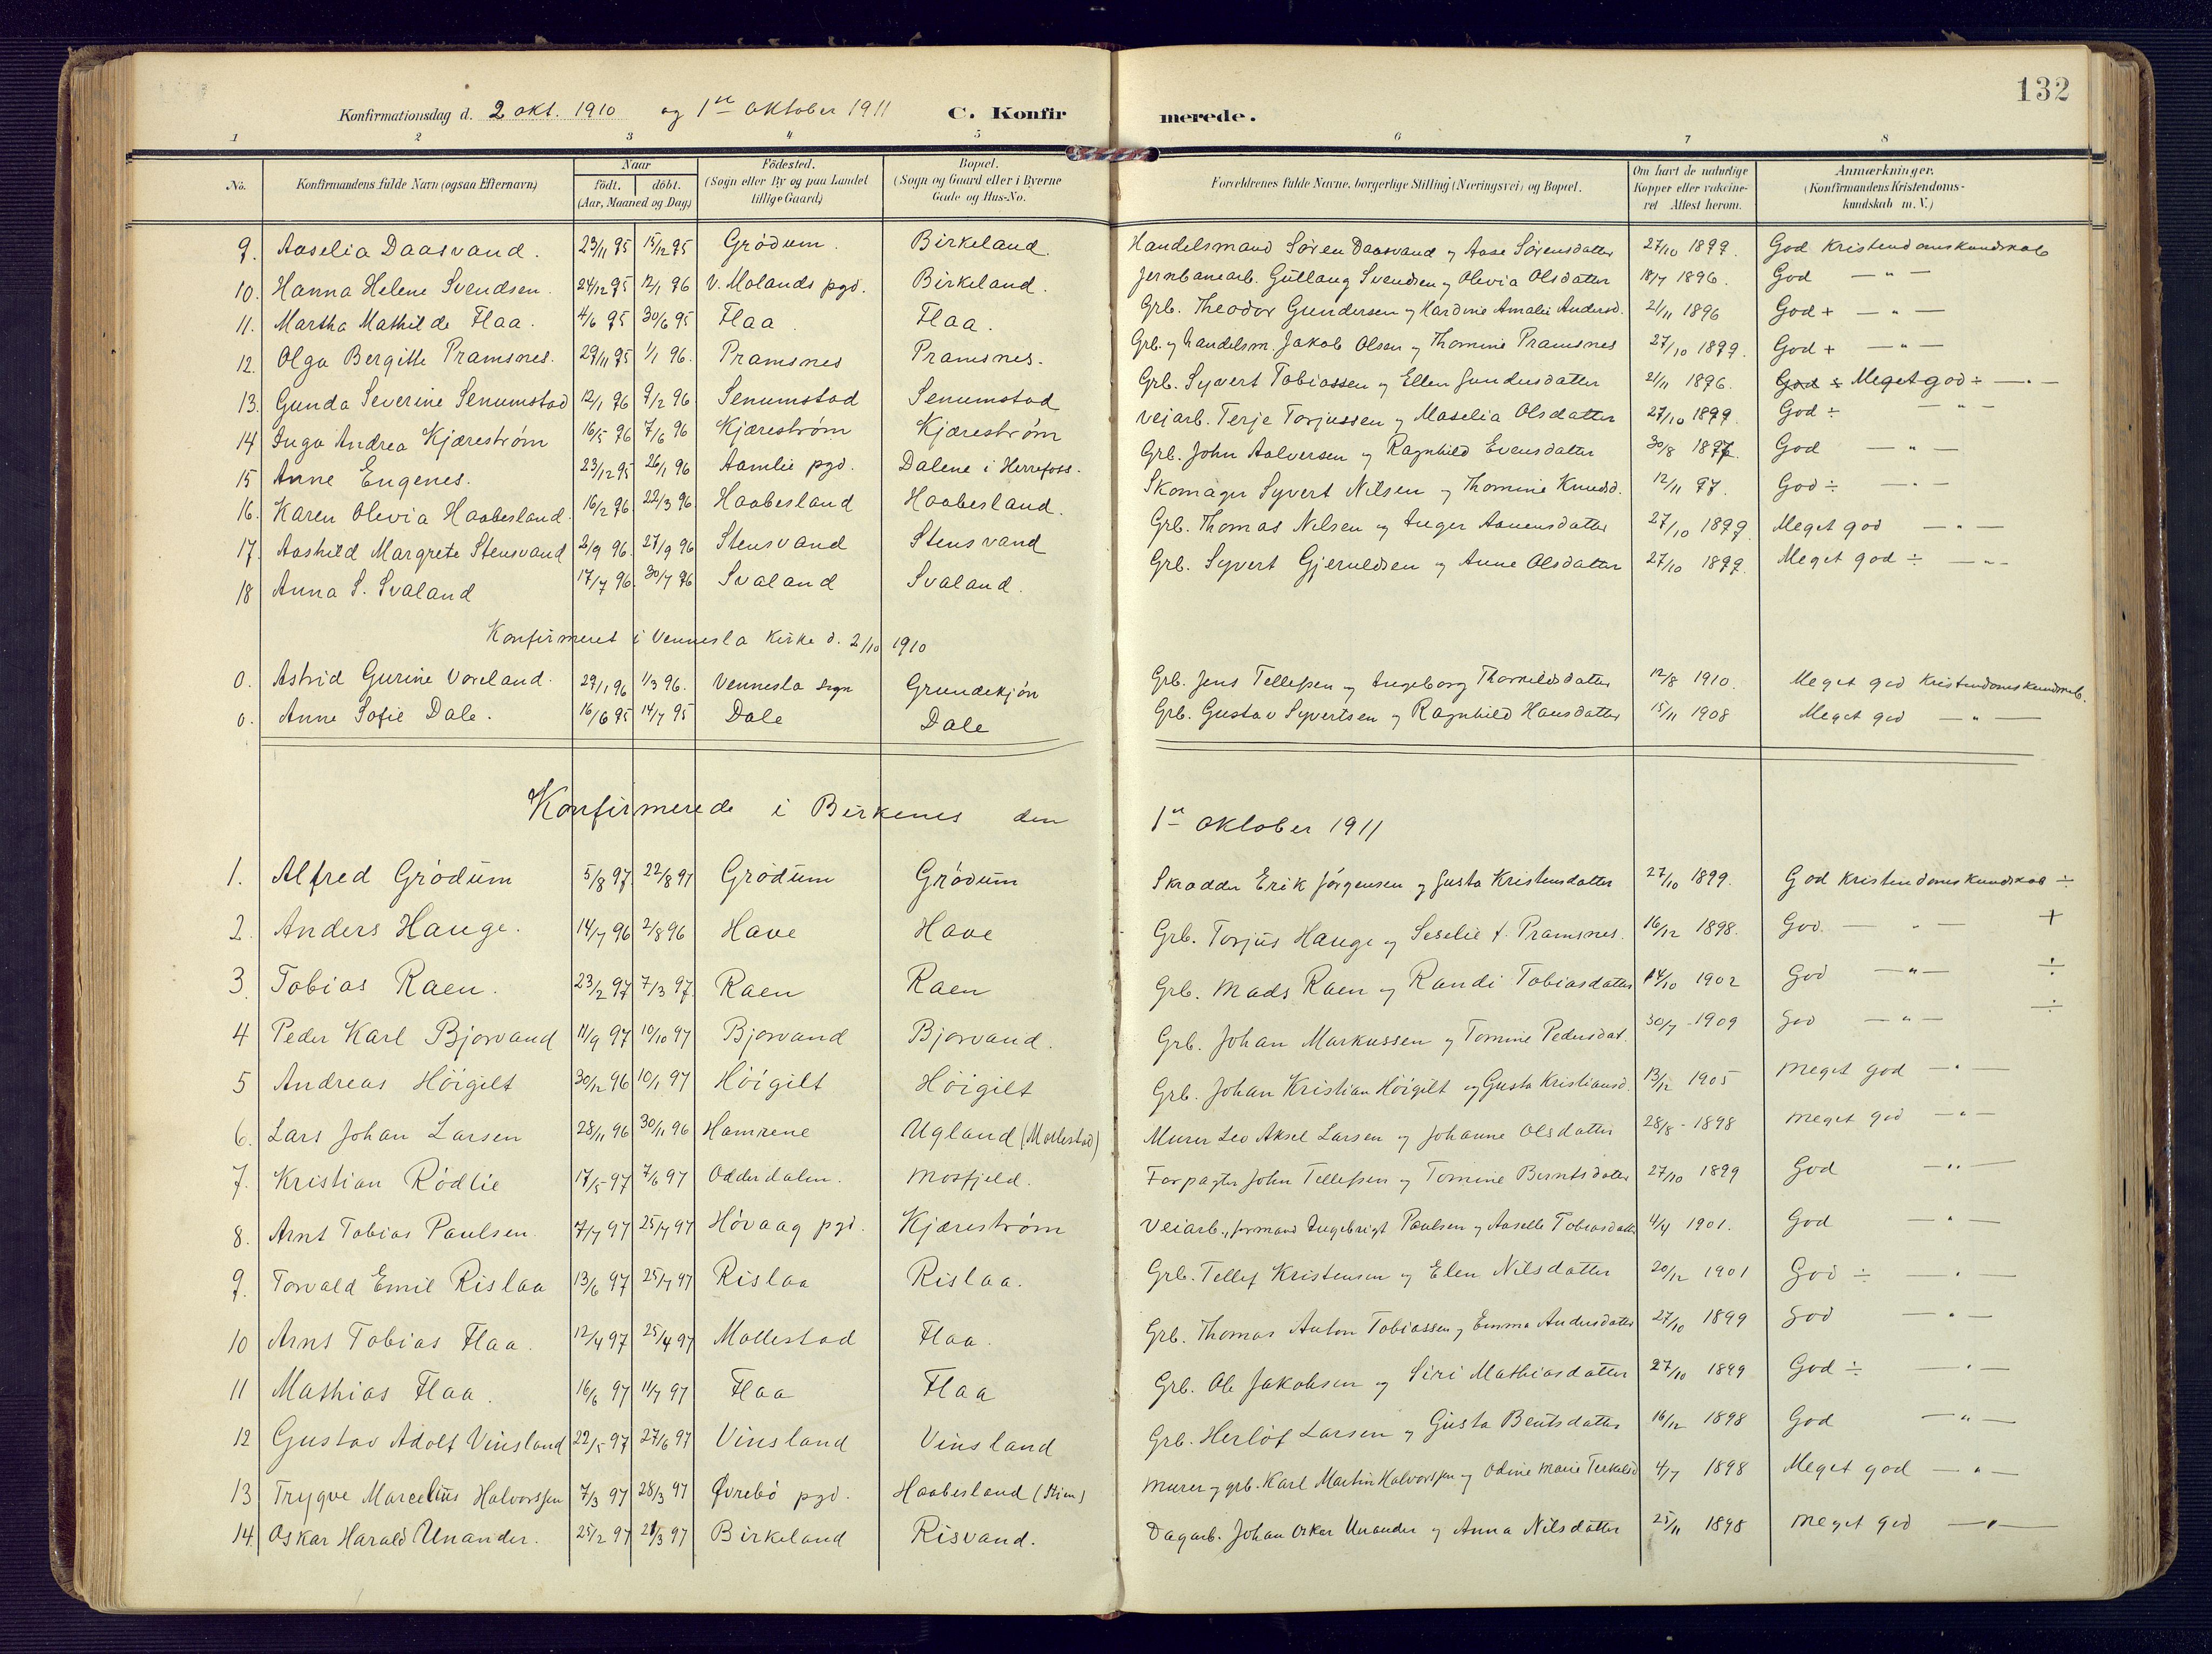 132
Konfirmationsdag d. 2 okt. 1910 og 1ste Oktober 1911 C. Konfirmerede.
1 2 3 4 5 6 7 8
No. Konfirmandens fulde Navn (ogsaa Efternavn) Naar født. døbt. (Aar, Maaned og Dag) Födested. (Sogn eller By og paa Landet tillige Gaard) Bopæl. (Sogn og Gaard eller i Byerne Gade og Hus-No. Forældrenes fulde Navne, borgerlige Stilling (Næringsvei) og Bopæl. Om havt de naturlige Kopper eller vakcineret Attest herom. Anmærkninger. (Konfirmandens Kristendomskundskab m. V.)
9. Aaselia Daasvand. 23/11 95 15/12 95 Grødum. Birkeland. Handelsmand Søren Daasvand og Aase Sørensdatter 27/10 1899. God Kristendomskundskab
10. Hanna Helene Svendsen. 24/12 95 12/1 96 V. Molands pgd. Birkeland. Jernbanearb. Gutlaug Svendsen og Olevia Olsdatter 18/7 1896. God — " —
11. Martha Mathilde Flaa. 4/6 95 30/6 95 Flaa Flaa. Grb. Theodor Gundersen og Hardine Amalie Andersd. 21/11 1896 God + — " —
12. Olga Bergitte Pramsnes. 29/11 95 1/1 96. Pramsnes Pramsnes. Grb. og Handelsm. Jakob Olsen og Thomine Pramsnes 27/10 1899. God + — " —
13. Gunda Severine Senumstad 12/1 96 9/2 96 Senumstad Senumstad Grb. Syvert Tobiassen og Ellen Gundersdatter 21/11 1896. God ÷ Meget god ÷ — " —
14 Inga Andrea Kjærestrøm 16/5 96 7/6 96 Kjærestrøm Kjærestrøm Veiarb. Terje Torjussen og Maselia Olsdatter 27/10 1899. God ÷ — " —
15 Anne Engenes. 23/12 95 26/1 96 Aamlie pgd. Dalene i Herrefoss. Grb. John Aalversen og Ragnhild Evensdatter 30/8 1897. God — " —
16. Karen Olevia Haabesland. 16/2 96. 22/3 96 Haabesland Haabesland. Skomager Syvert Nilsen og Thomine Knudsd. 12/11 97. God ÷ — " —
17. Aashild Margrete Stensvand 2/9 96. 27/9 96 Stensvand Stensvand Grb. Thomas Nilsen og Inger Aanensdatter 27/10 1899 Meget god — " —
18 Anna S. Svaland 17/7 96. 30/7 96 Svaland Svaland. Grb. Syvert Gjeruldsen og Anne Olsdatter 27/10 1899. Meget god ÷ — " —
Konfirmeret i Vennesla Kirke d. 2/10 1910
0. Astrid Gurine Vareland. 29/1 96 1/3 96. Vennesla sogn Grundekjøn Grb. Jens Tellefsen og Ingeborg Thorkildsdatter 12/8 1910. Meget god Kristendomskundskab.
0. Anne Sofie Dale. 16/6 95 14/7 95 Dale Dale Grb. Gustav Syvertsen og Ragnhild Hansdatter 15/11 1908 Meget god — " —
Konfirmerede i Birkenes den 1ste Oktober 1911
1. Alfred Grødum 5/8 97 22/8 97 Grødum Grødum Skrædder Erik Jørgensen og Gusta Kristensdatter 27/10 1899. God Kristendomskundskab ÷
2. Anders Hauge. 14/7 96 2/8 96 Have Have Grb. Torjus Hauge og Seselie f. Pramsnes. 16/12 1898. God. — " — +
3. Tobias Raen. 23/2 97 7/3 97. Raen Raen Grb. Mads Raen og Randi Tobiasdatter 14/10 1902 God — " — ÷
4 Peder Karl Bjorvand 11/9 97 10/10 97 Bjorvand Bjorvand. Grb. Johan Markussen og Tomine Pedersdat. 30/7 1909 God — " — ÷
5 Andreas Høigilt 30/12 96 10/1 97 Høigilt Høigilt Grb. Johan Kristian Høigilt og Gusta Kristiansd. 13/12 1905 Meget god — " —
6. Lars Johan Larsen 28/11 96 30/11 96 Hamrene Ugland (Mollestad) Murer Leo Aksel Larsen og Johanne Olsdatter 28/8 - 1898 Meget god — " —
7. Kristian Rødlie 17/5 97 7/6 97 Odderdalen. Mosfjeld. Forpagter John Tellefsen og Tomine Berntsdatter 27/10 1899 God — " —
8. Arnt Tobias Paulsen. 7/7 97 25/7 97 Høvaag pgd. Kjærestrøm Veiarb., formand Ingebrigt Paulsen og Aaselle Tobiasdatter 4/4 1901. God — " —
9. Torvald Emil Rislaa 13/6 97 25/7 97 Rislaa Rislaa. Grb. Tellef Kristensen og Elen Nilsdatter 20/12 1901 God ÷ — " —
10 Arnt Tobias Flaa. 12/4 97 25/4 97 Mollestad Flaa. Grb. Thomas Anton Tobiassen og Emma Andersdatter 27/10 1899 God — " —
11 Mathias Flaa. 16/6 97 11/7 97 Flaa Flaa Grb. Ole Jakobsen og Siri Mathiasdatter 27/10 1899 God ÷ — " —
12 Gustav Adolf Vinsland 22/5 97 27/6 97 Vinsland Vinsland Grb. Herlof Larsen og Gusta Bentsdatter 16/12 1898 God — " —
13 Trygve Marcelius Halvorssen 7/3 97 28/3 97 Øvrebø pgd. Haabesland (Stien) Murer og grb. Karl Martin Halvorssen og Odine Marie Terkelsd 4/7 1898 Meget god — " —
14. Oskar Harald Unander. 25/2 97 21/3 97 Birkeland Risvand. Dagarb. Johan Oskar Unander og Anna Nilsdatter 25/11 1898 Meget god — " —